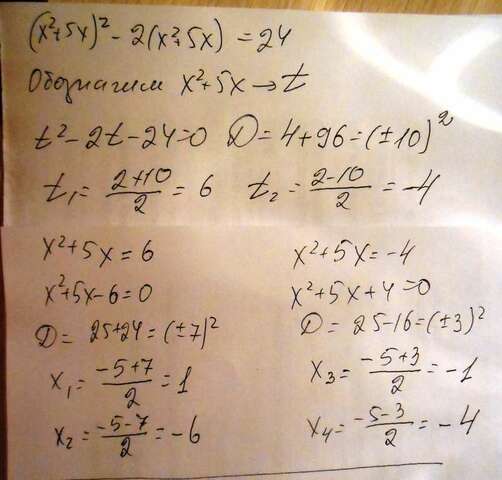 (x²+5x)² - 2(x²+5x) = 24
Обозначим x²+5x → t
t² - 2t - 24 = 0 D = 4 + 96 = (±10)²
t₁ = (2+10)/2 = 6 t₂ = (2-10)/2 = -4
x² + 5x = 6
x² + 5x - 6 = 0
D = 25 + 24 = (±7)²
x₁ = (-5+7)/2 = 1
x₂ = (-5-7)/2 = -6
x² + 5x = -4
x² + 5x + 4 = 0
D = 25 - 16 = (±3)²
x₃ = (-5+3)/2 = -1
x₄ = (-5-3)/2 = -4